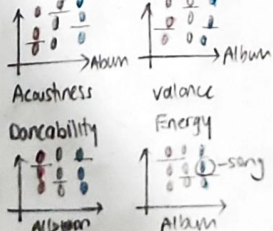 Album Album
Acoustness valance
Dancability Energy
song
Album Album